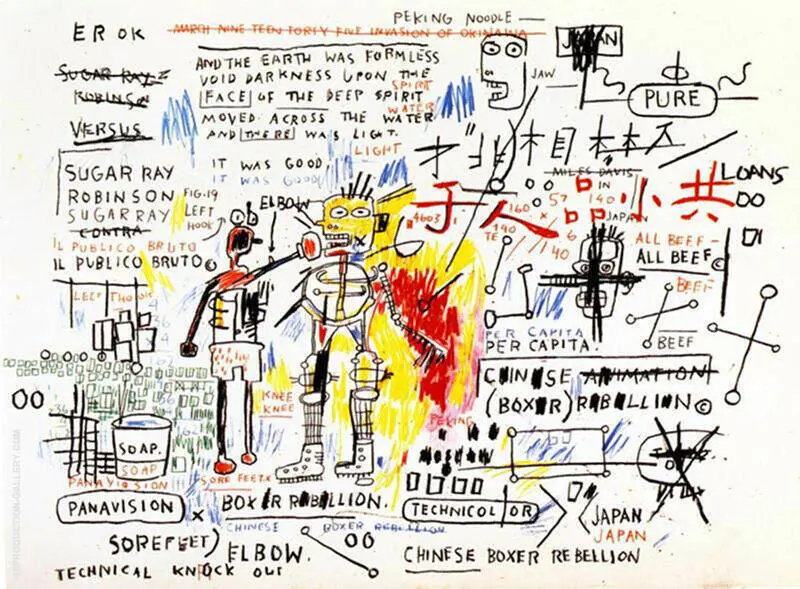 PEKING NOODLE
EROK
MARCH NINE TEEN FORTY FIVE INVASION OF OKINAWA
JAPAN
AND THE EARTH WAS FORMLESS
VOID DARKNESS UPON THE
SPIRIT
FACE OF THE DEEP SPIRIT
WATER
MOVED ACROSS THE WATER
AND THERE WAS LIGHT.
LIGHT
SUGAR RAY
ROBINSON
VERSUS
JAW
PURE
IT WAS GOOD
IT WAS GOOD
SUGAR RAY
ROBINSON
SUGAR RAY
CONTRA
IL PUBLICO BRUTO
IL PUBLICO BRUTO
FIG.19
LEFT
HOOK
ELBOW
MILES DAVIS
IN
JAPAN
于人品小共
LOANS
OO
4603
160
57
140
x 6
140
140
TE
ALL BEEF -
ALL BEEF©
BEEF
BEEF
PER CAPITA
PER CAPITA.
LEFT
CHINESE ANIMATION
(BOXER) REBELLION©
KNEE
KNEE
PEKING
OO
SOAP.
SOAP
PANAVISION
SORE FEET.x
PANAVISION x BOXER REBELLION.
TECHNICOLOR
CHINESE BOXER REBELLION
JAPAN
JAPAN
SOREFEET) ELBOW.
OO
CHINESE BOXER REBELLION
TECHNICAL KNOCK OUT
REPRODUCTION-GALLERY.COM